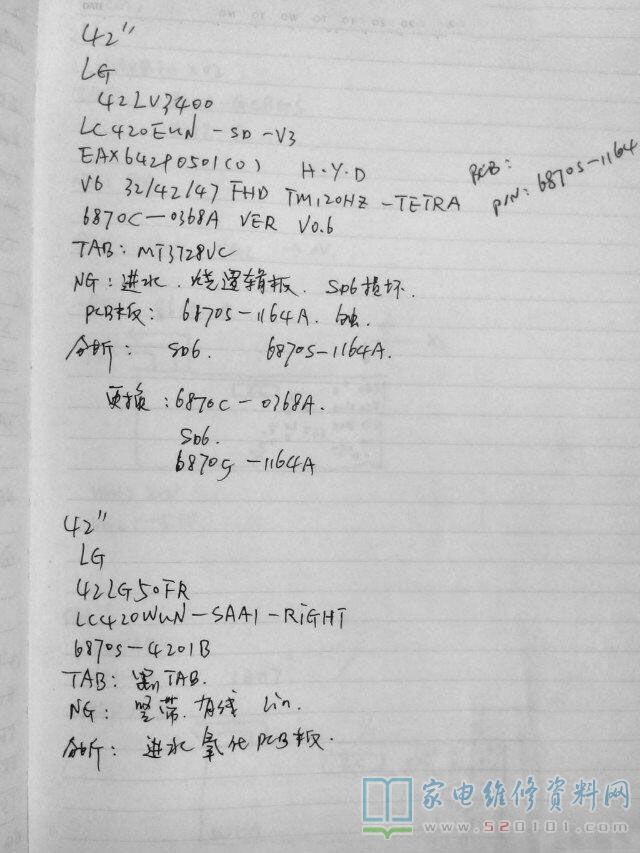 42"
LG
42LV3400
LC420EUN-SD-V3
EAX64290501(0) H.Y.D
PCB:
V6 32/42/47 FHD TM120HZ-TETRA
P/N: 6870S-1164
6870C-0368A VER V0.6
TAB: MT3728VC
NG: 进水. 烧逻辑板. SD6损坏.
PCB板: 6870S-1164A. 蚀.
分析: SD6. 6870S-1164A.
更换: 6870C-0368A.
SD6.
6870S-1164A
42"
LG
42LG50FR
LC420WUN-SAA1-RIGHT
6870S-4201B
TAB: TAB.
NG: 竖带. 有线 Lin.
分析: 进水氧化PCB板.
家电维修资料网
www.520101.com